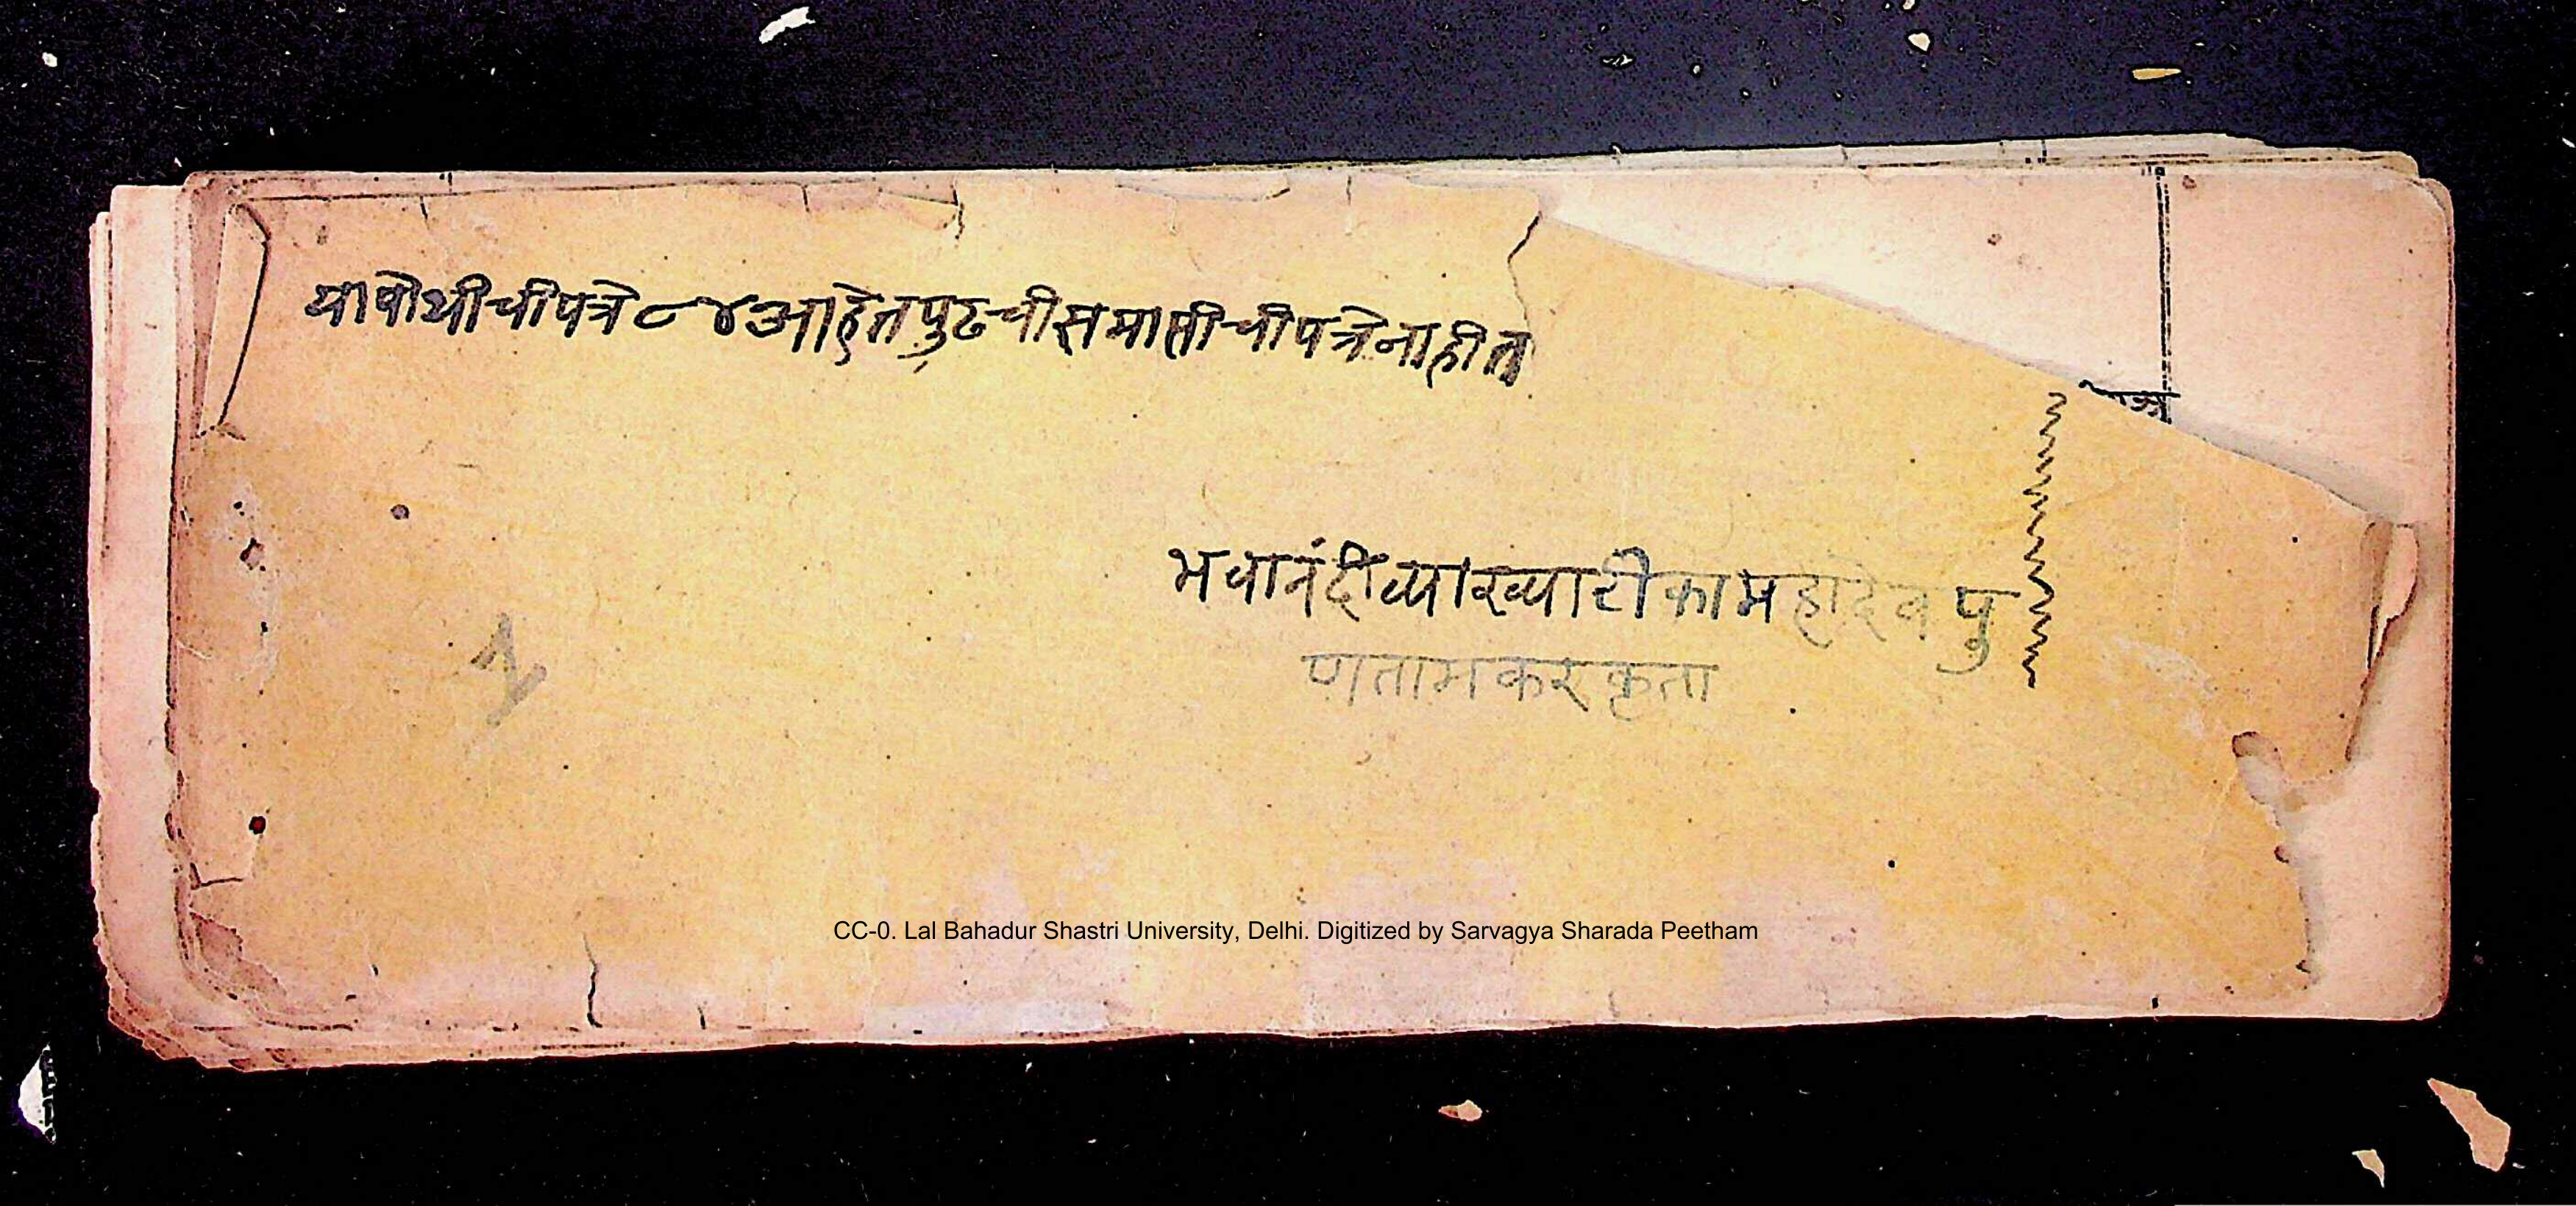 या पोथीची पत्रे ८४ आहेत पुढची समाप्तीची पत्रे नाहीत
भवानंदीव्याख्याटीका महादेवपु
णतामकरकृता
CC-0. Lal Bahadur Shastri University, Delhi. Digitized by Sarvagya Sharada Peetham